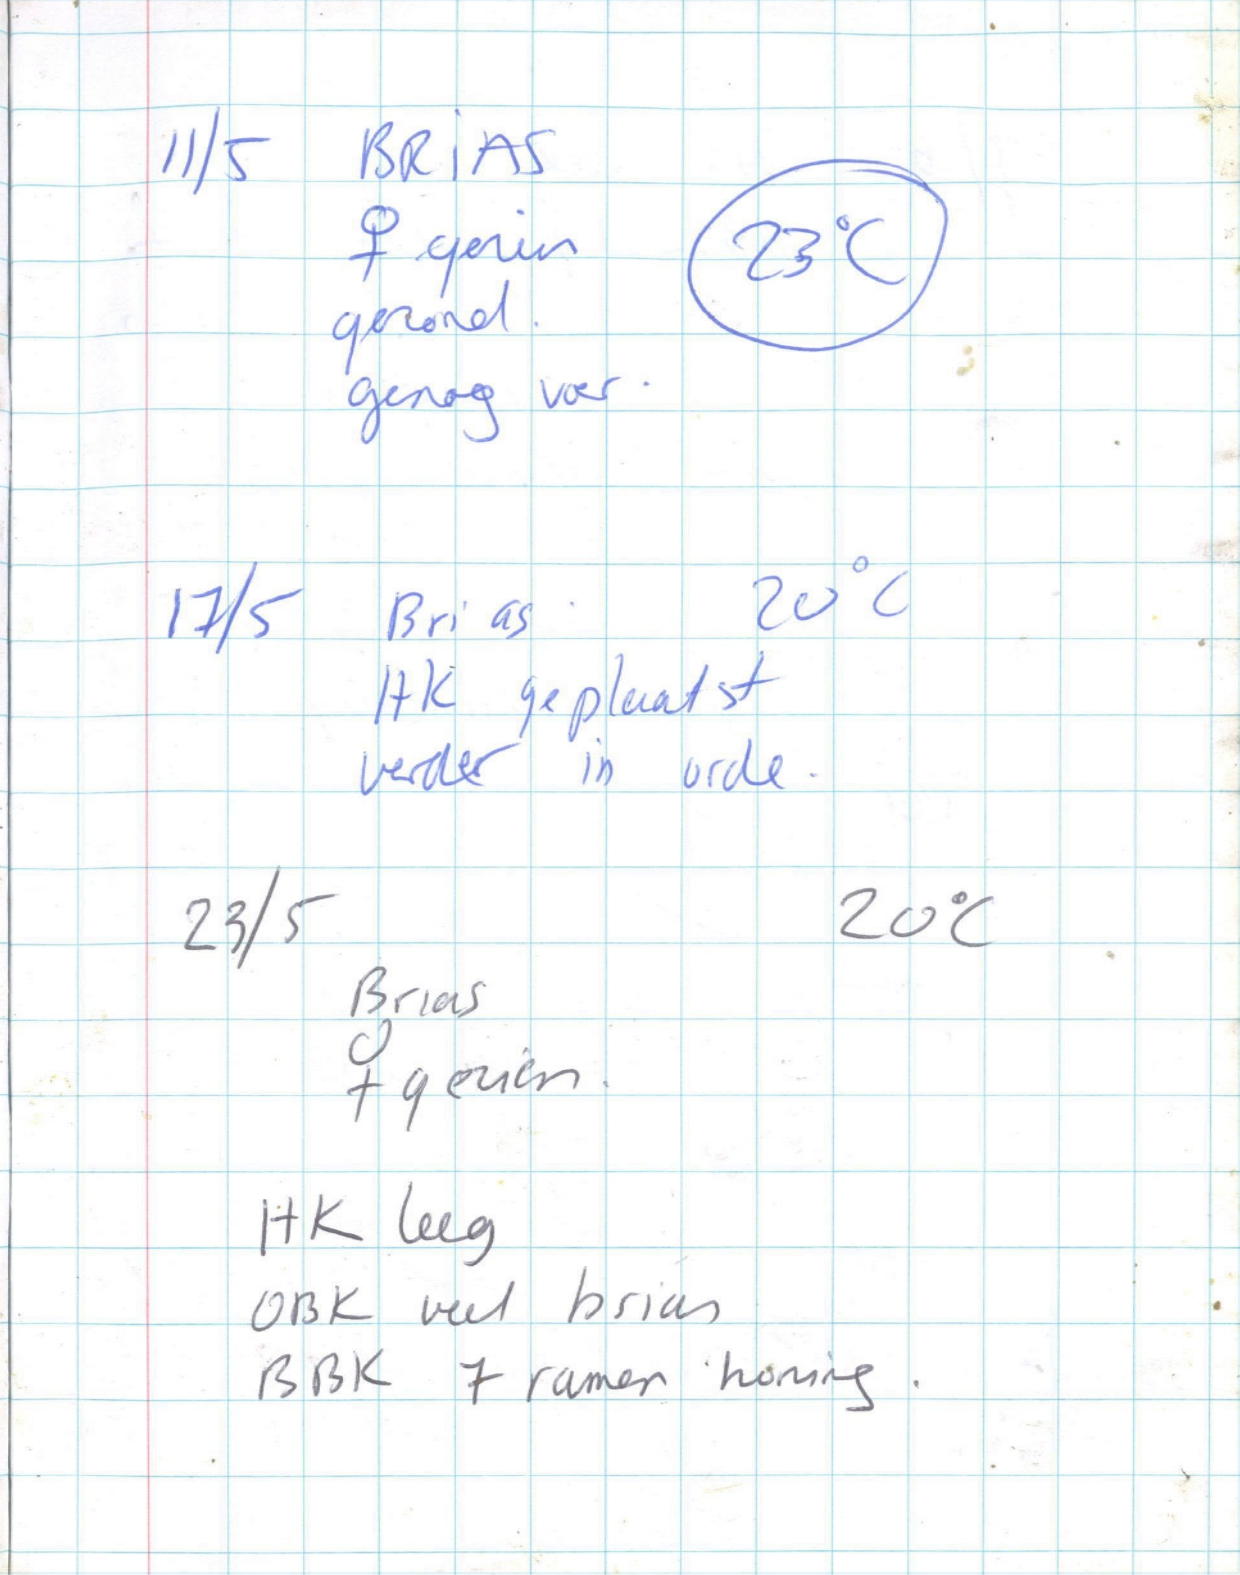 11/5 BRiAS
♀ gezien 23°C
gezond.
genoeg voer.
17/5 Brias 20°C
HK geplaatst
verder in orde.
23/5 20°C
Brias
♀ gezien.
HK leeg
OBK veel brias
BBK 7 ramen honing.